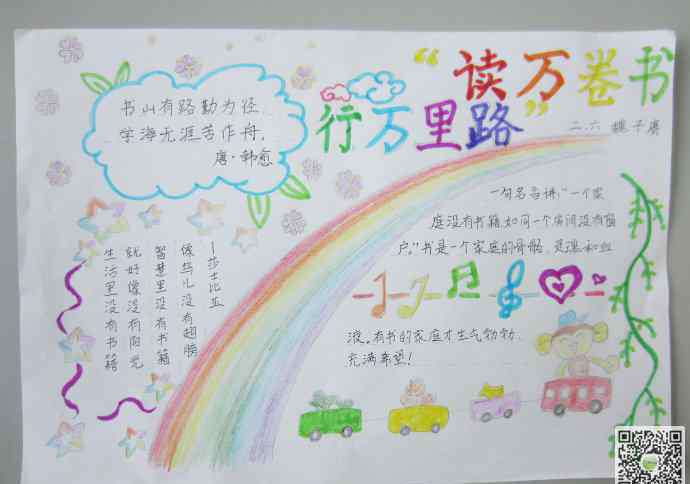 “读万卷书
行万里路”
二.六 子
书山有路勤为径
学海无涯苦作舟。
唐·韩愈
生活里没有书籍
就好像没有阳光
智慧里没有书籍
像鸟儿没有翅膀
—莎士比亚
一句名言讲“一个家
庭没有书籍,如同一个房间没有窗
户。”书是一个家庭的骨骼、灵魂和血
液。有书的家庭才生气勃勃、
充满希望!